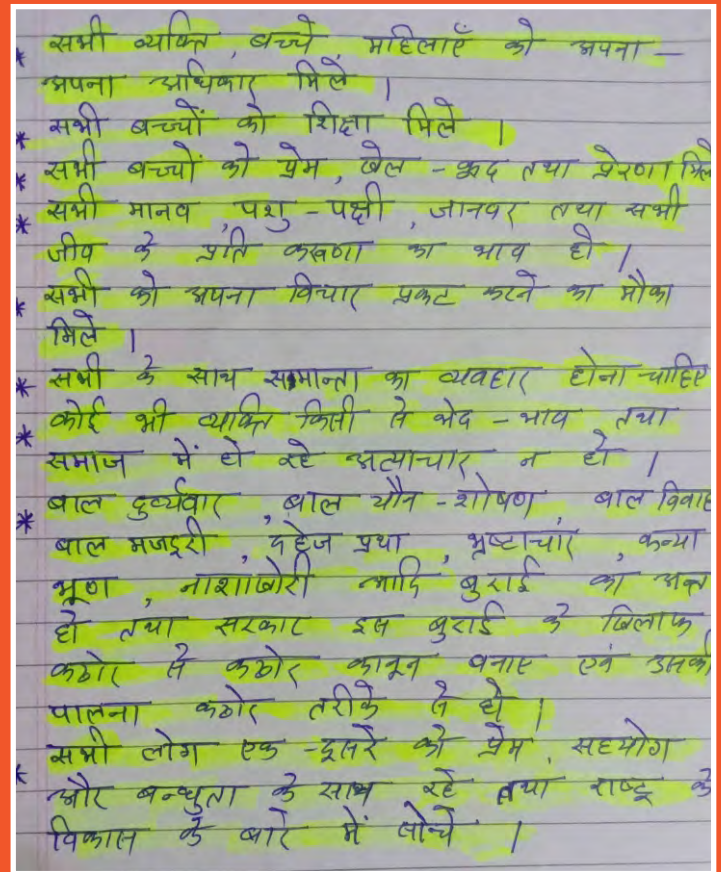 * सभी व्यक्ति, बच्चे, महिलाएँ को अपना -
अपना अधिकार मिले ।
* सभी बच्चों को शिक्षा मिले ।
* सभी बच्चों को प्रेम, खेल - कूद तथा प्रेरणा मिले
* सभी मानव, पशु - पक्षी, जानवर तथा सभी
जीव के प्रति करूणा का भाव हो ।
* सभी को अपना विचार प्रकट करने का मौका
मिले ।
* सभी के साथ समान्ता का व्यवहार होना चाहिए
* कोई भी व्यक्ति किसी से भेद - भाव तथा
समाज में हो रहे अत्याचार न हो ।
* बाल दुर्व्यवार, बाल यौन - शोषण बाल विवाह
बाल मजदूरी, दहेज प्रथा, भ्रष्टाचार, कन्या
भ्रूण, नाशाखोरी आदि बुराई का अन्त
हो तथा सरकार इस बुराई के खिलाफ
कठोर से कठोर कानून बनाए एवं उसकी
पालना कठोर तरीके से हो ।
* सभी लोग एक - दूसरे को प्रेम, सहयोग
और बन्धुता के साथ रहे तथा राष्ट्र के
विकास के बारे में सोन्चे ।